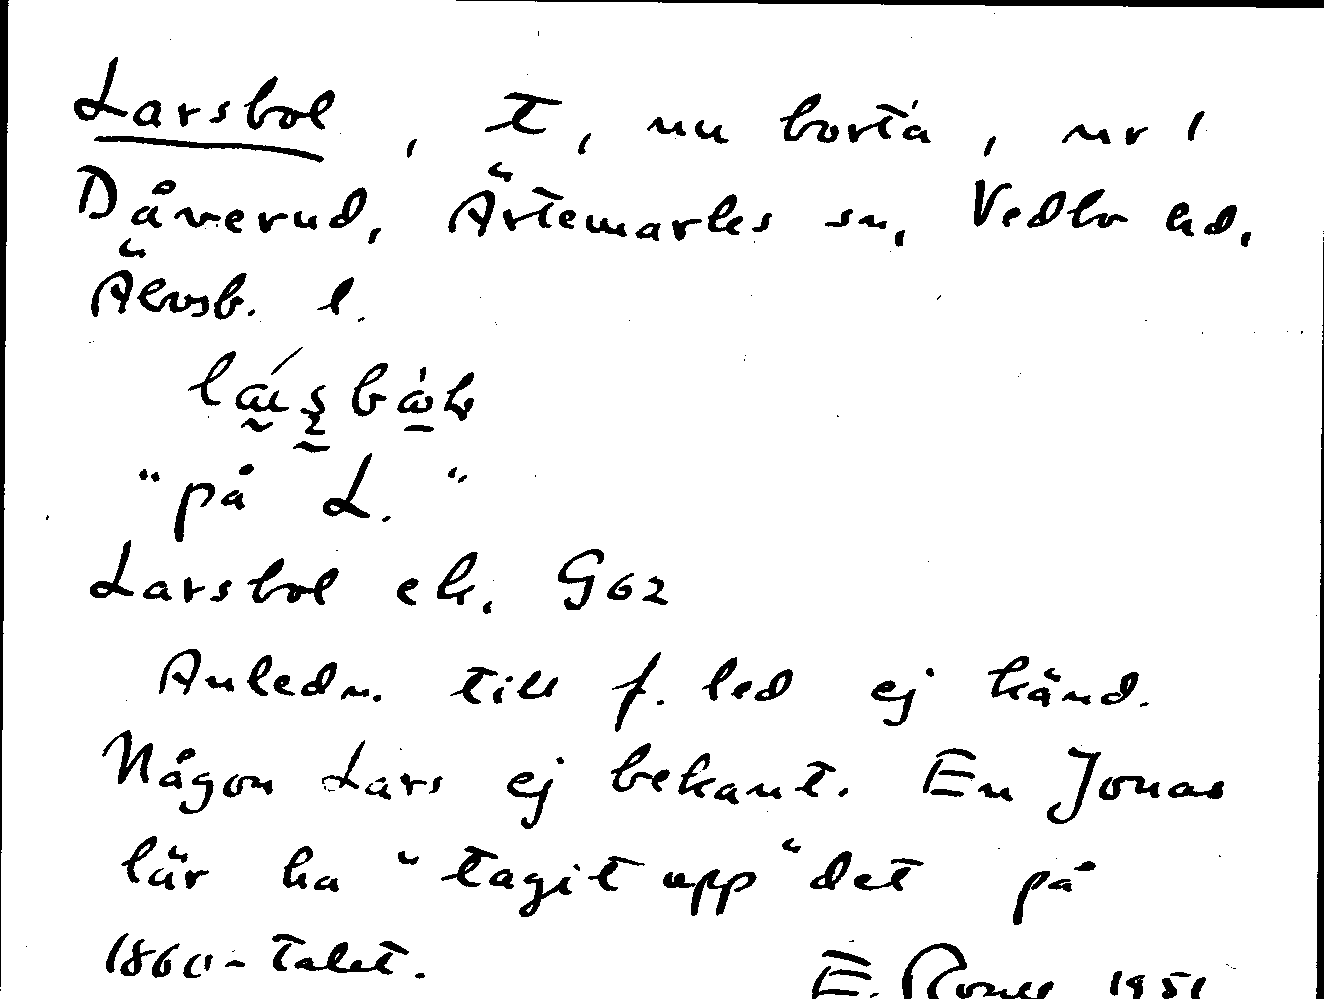 Larsbol, t, nu borta, nr 1
Dåverud, Ärtemarks sn, Vedbo hd,
Älvsb. l.
"på L."
Larsbol ek. G62
Anledn. till f. led ej känd.
Någon Lars ej bekant. En Jonas
lär ha "tagit upp" det på
1860-talet.
E. 1951